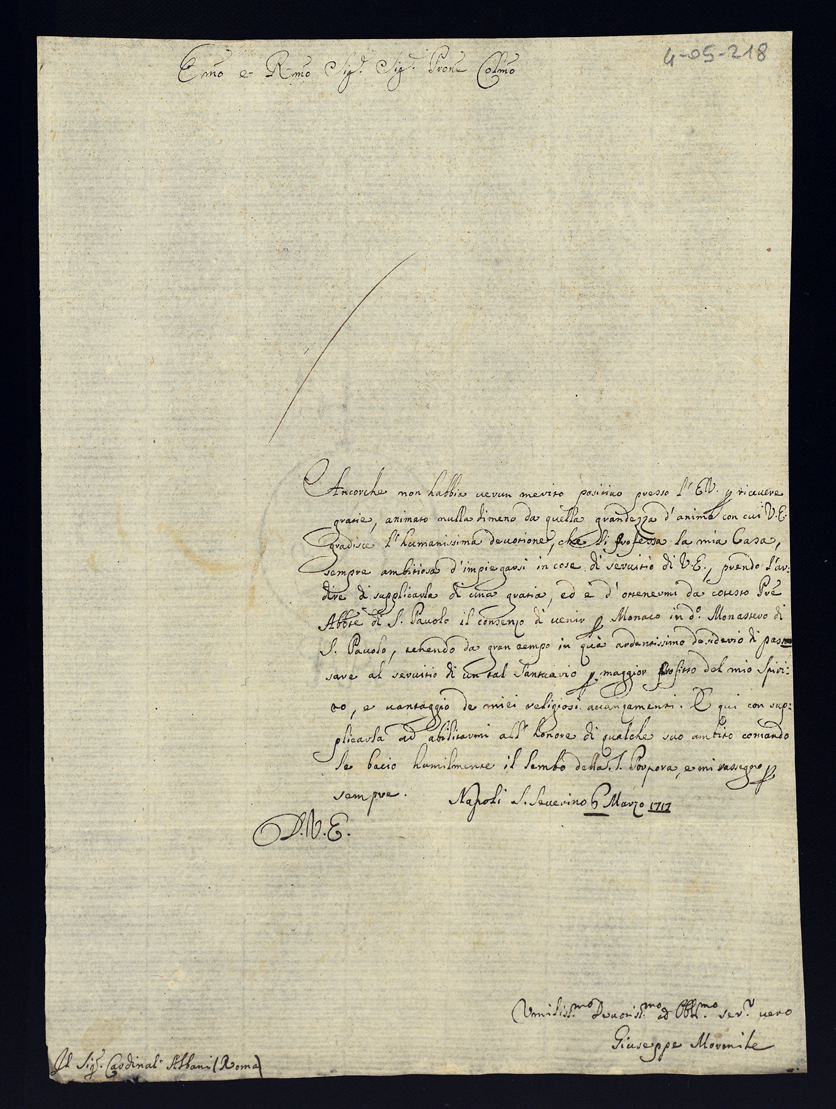 4-05-218
Emo e Rmo Sig.r Sig.r Prone Colmo
Ancorche non habbia verun merito positivo presso l'E.V. p ricevere
gratie, animato nulladimeno da quella grandezza d'animo con cui V.E.
gradisce l'humanissima devotione, che li professa la mia Casa,
sempre ambitiosa d'impiegarsi in cose di servitio di V.E., prendo l'ar-
dire di supplicarla di una gratia, ed è d'ottenermi da cotesto Pre
Abbte di S. Pavolo il consenzo di venir p Monaco in do. Monastero di
S. Pavolo, tenendo da gran tempo in quà ardentissimo desiderio di pas=
sare al servitio di un tal Santuario p maggior profitto del mio Spiri=
to, e vantaggio de miei religiosi avanzamenti. E qui con sup=
plicarla ad abilitarmi all'honore di qualche suo ambito comando
le bacio humilmente il lembo della S. Porpora, e mi rassegno p
sempre. Napoli S. Severino 6 Marzo 1717
D.V.E.
Umiliss.mo Devotis.mo ed Obbl.mo ser.r vero
Giuseppe Mormile
Il Sig.r Cardinal Albani (Roma)